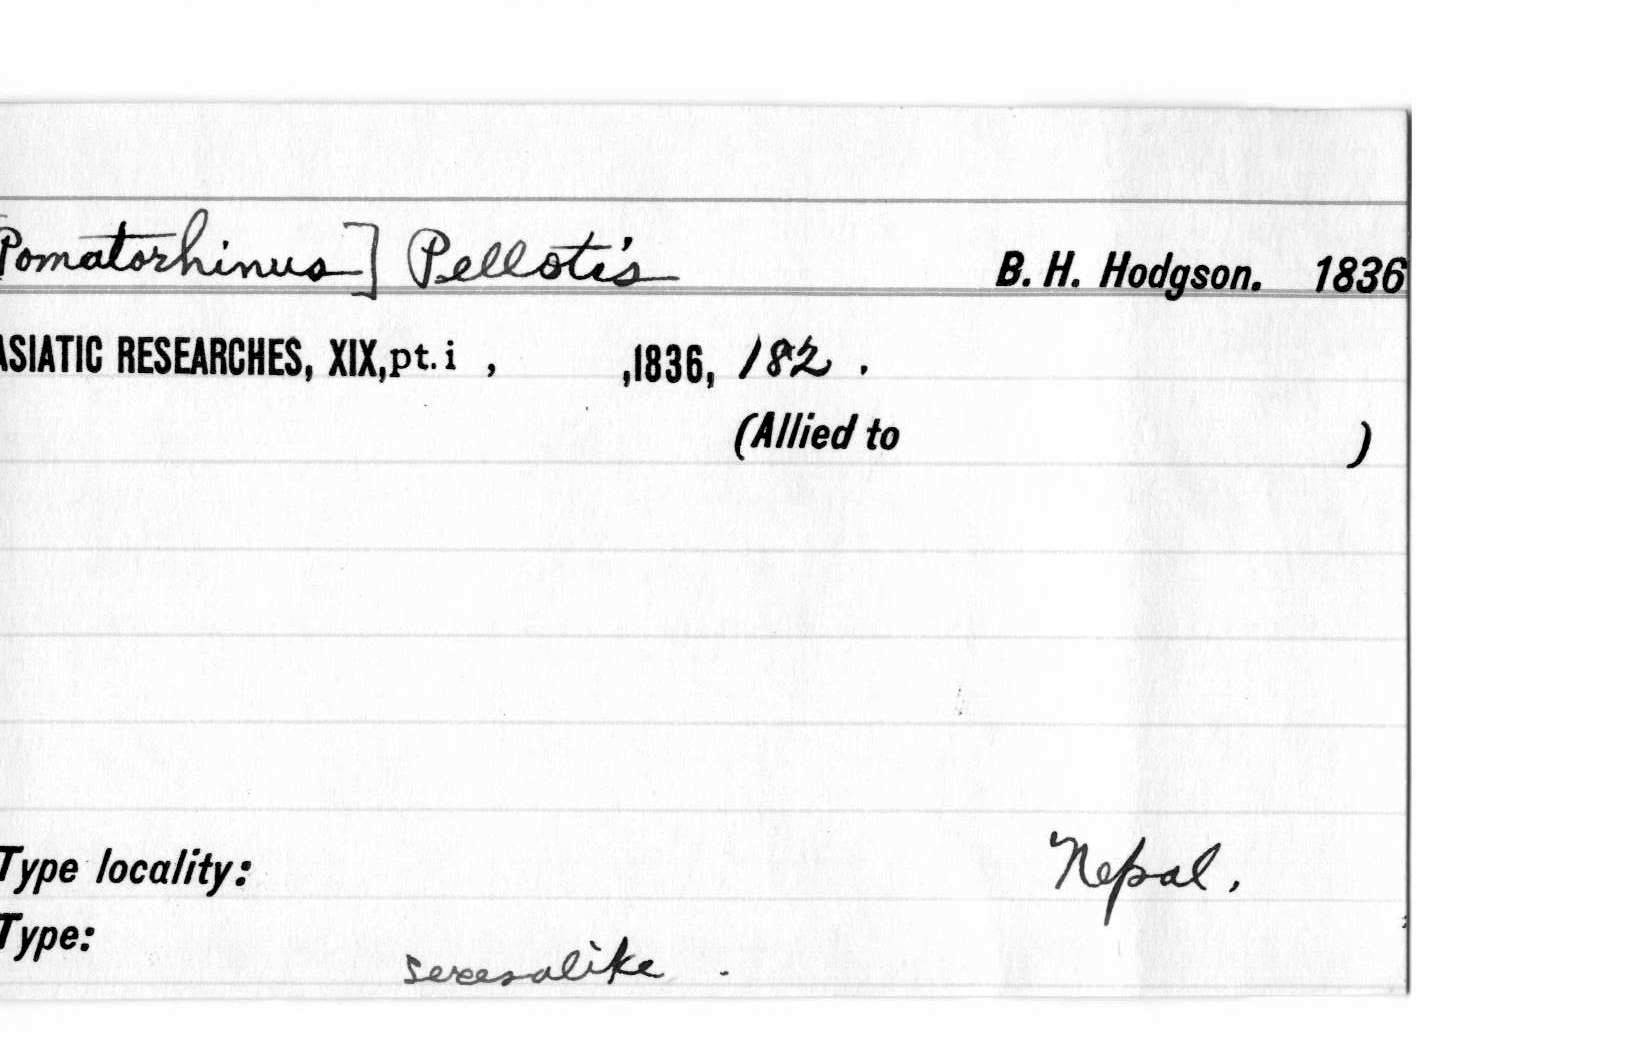 Pomatorhinus] Pellotis B. H. Hodgson. 1836
ASIATIC RESEARCHES, XIX, pt. i , ,1836, 182 .
(Allied to )
Type locality: Nepal.
Type:
sexes alike .